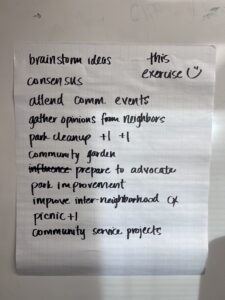 brainstorm ideas
this
exercise ☺
consensus
attend comm. events
gather opinions from neighbors
park cleanup +1 +1
community garden
influence prepare to advocate
park improvement
improve inter-neighborhood
picnic +1
community service projects